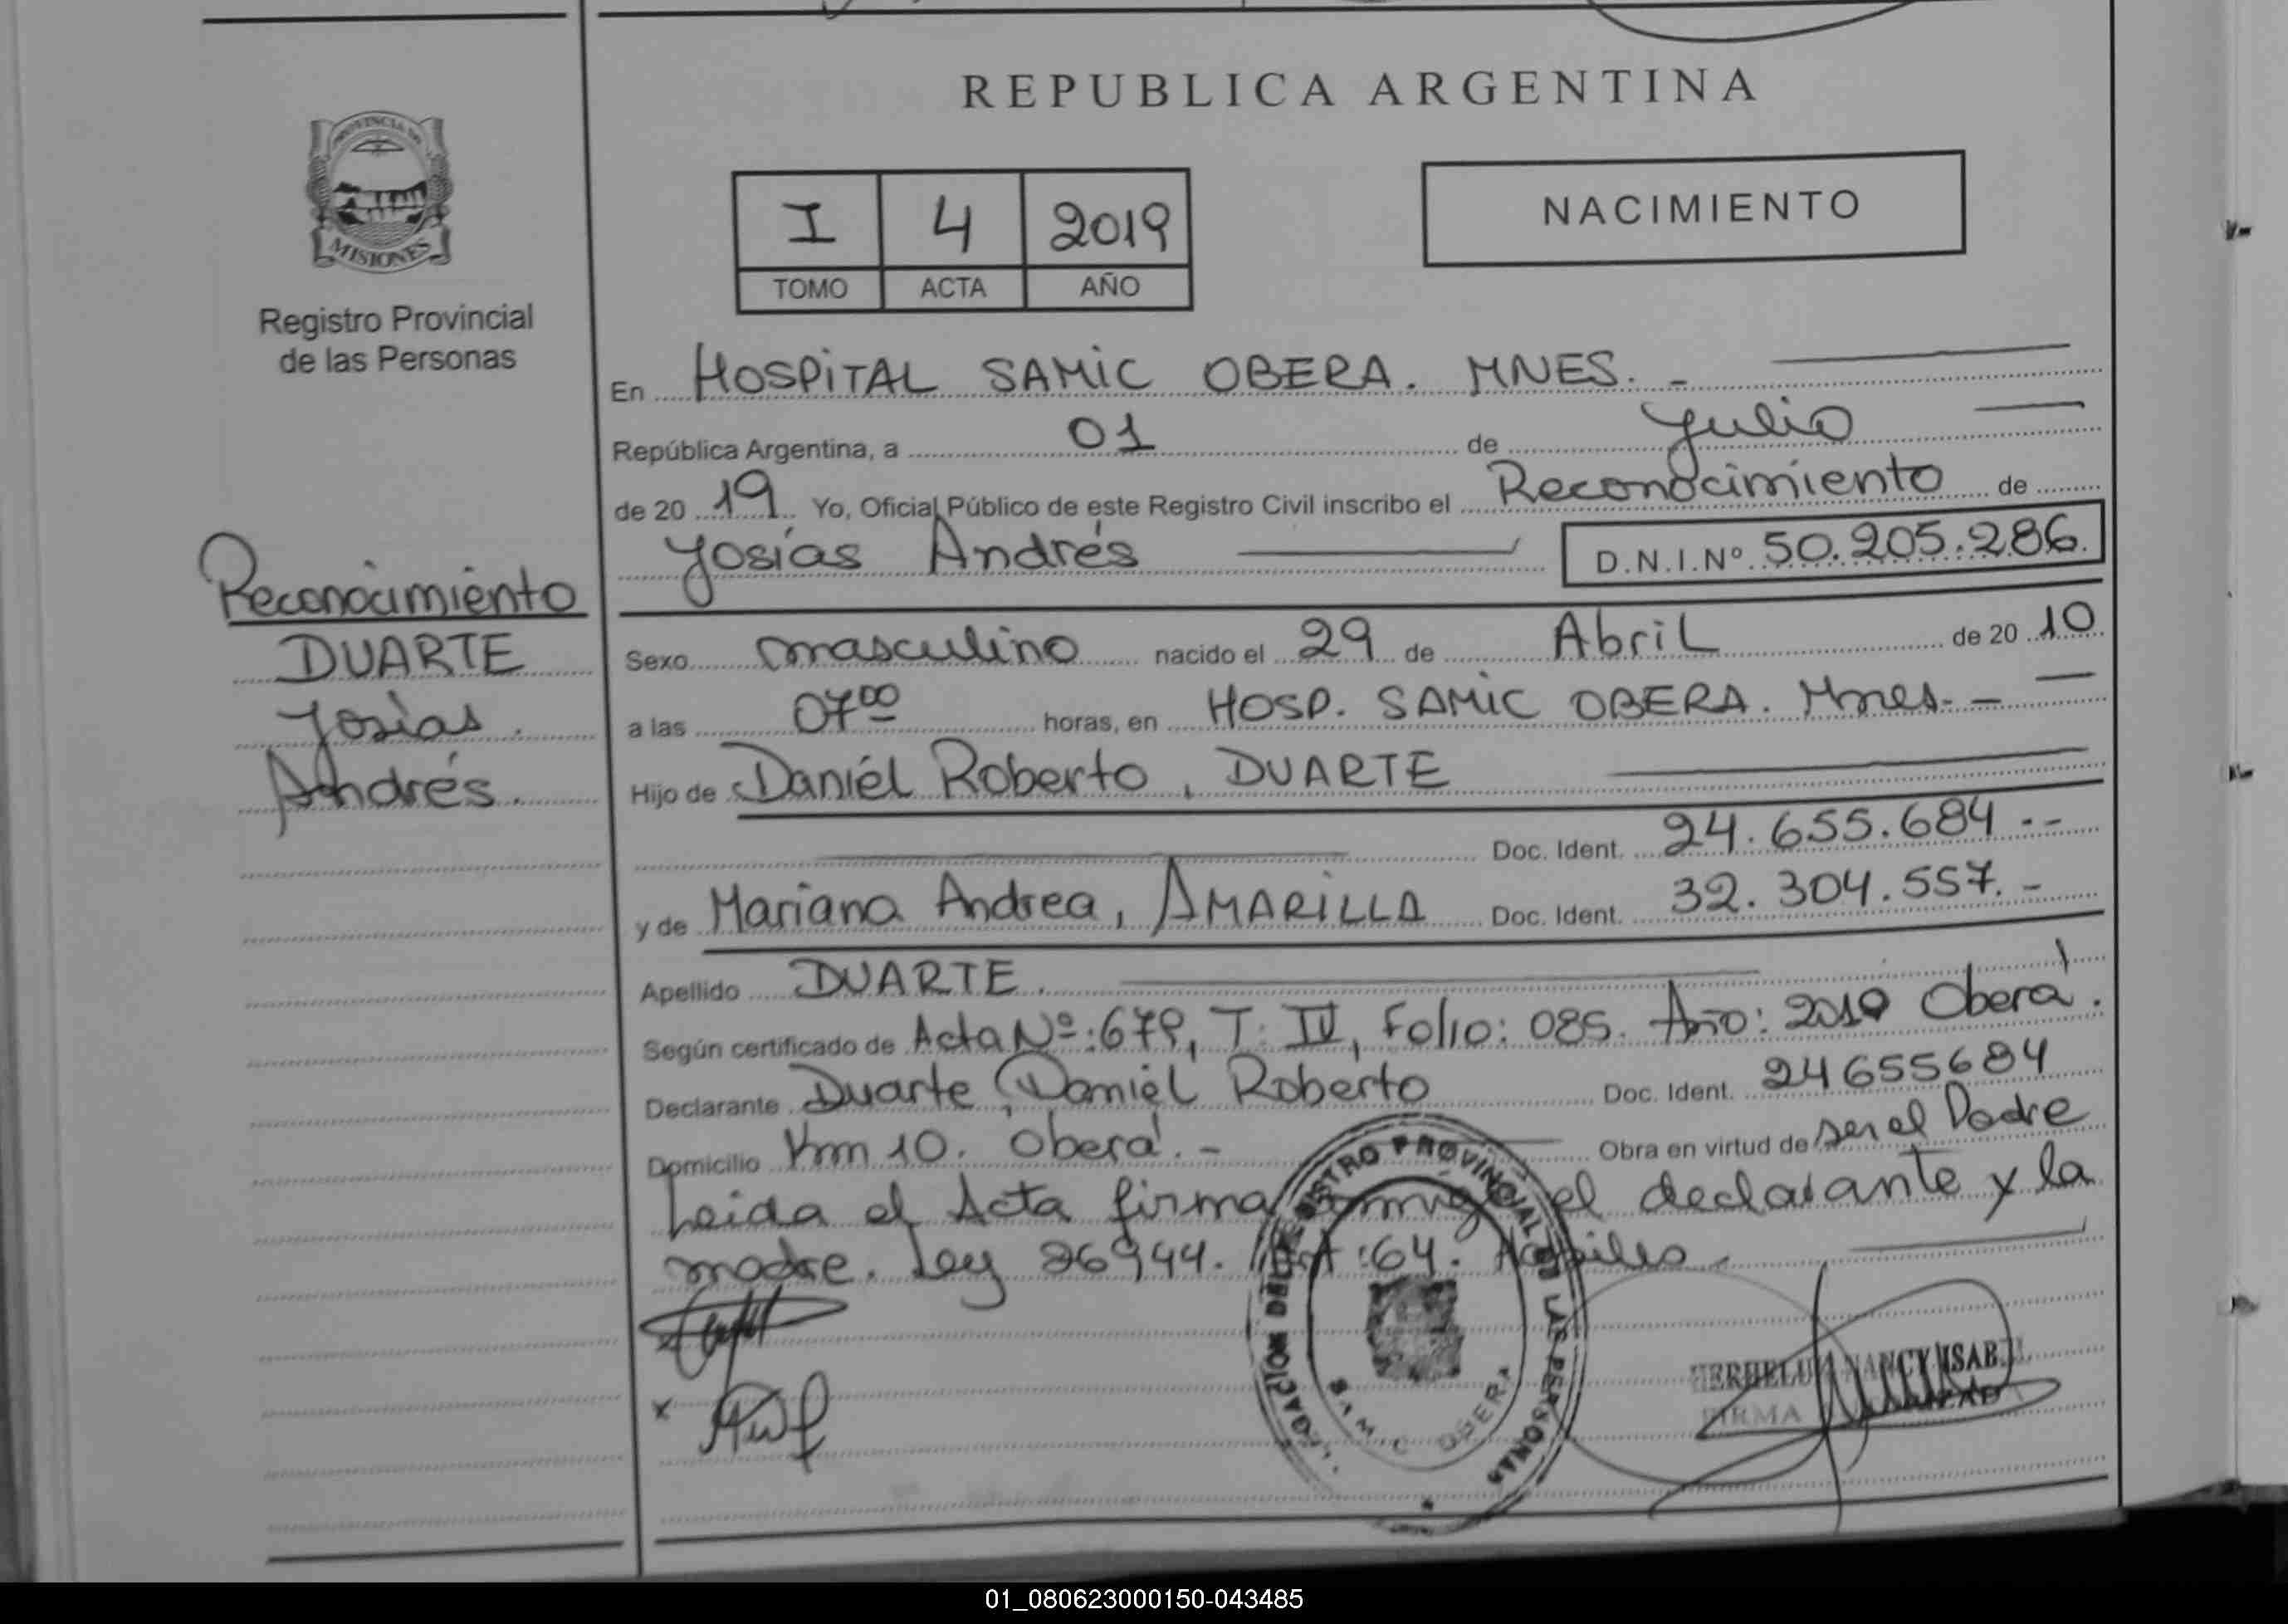 REPUBLICA ARGENTINA
PROVINCIA DE
MISIONES
Registro Provincial
de las Personas
I 4 2019
TOMO ACTA AÑO
NACIMIENTO
En HOSPITAL SAMIC OBERA. MNES. -
República Argentina, a 01 de Julio
de 20 19 Yo, Oficial Público de este Registro Civil inscribo el Reconocimiento de
Josías Andrés D.N.I.Nº 50.205.286.
Reconocimiento
DUARTE
Josías
Andrés.
Sexo masculino nacido el 29 de Abril de 20 10
a las 07 00 horas, en HOSP. SAMIC OBERA. Mnes. -
Hijo de Daniél Roberto, DUARTE
Doc. Ident. 24.655.684 --
y de Mariana Andrea, AMARILLA Doc. Ident. 32.304.557. -
Apellido DUARTE.
Según certificado de Acta Nº: 679, T. IV, Folio: 085. Año: 2010 Oberá.
Declarante Duarte, Daniel Roberto Doc. Ident. 24655684
Domicilio Km 10. Oberá. - Obra en virtud de ser el Padre
Leida el Acta firma el declarante y la
madre. Ley 26944. Art: 64.
REGISTRO PROVINCIAL DE LAS PERSONAS
SAMIC OBERA
NANCY ISABEL
FIRMA
01_080623000150-043485